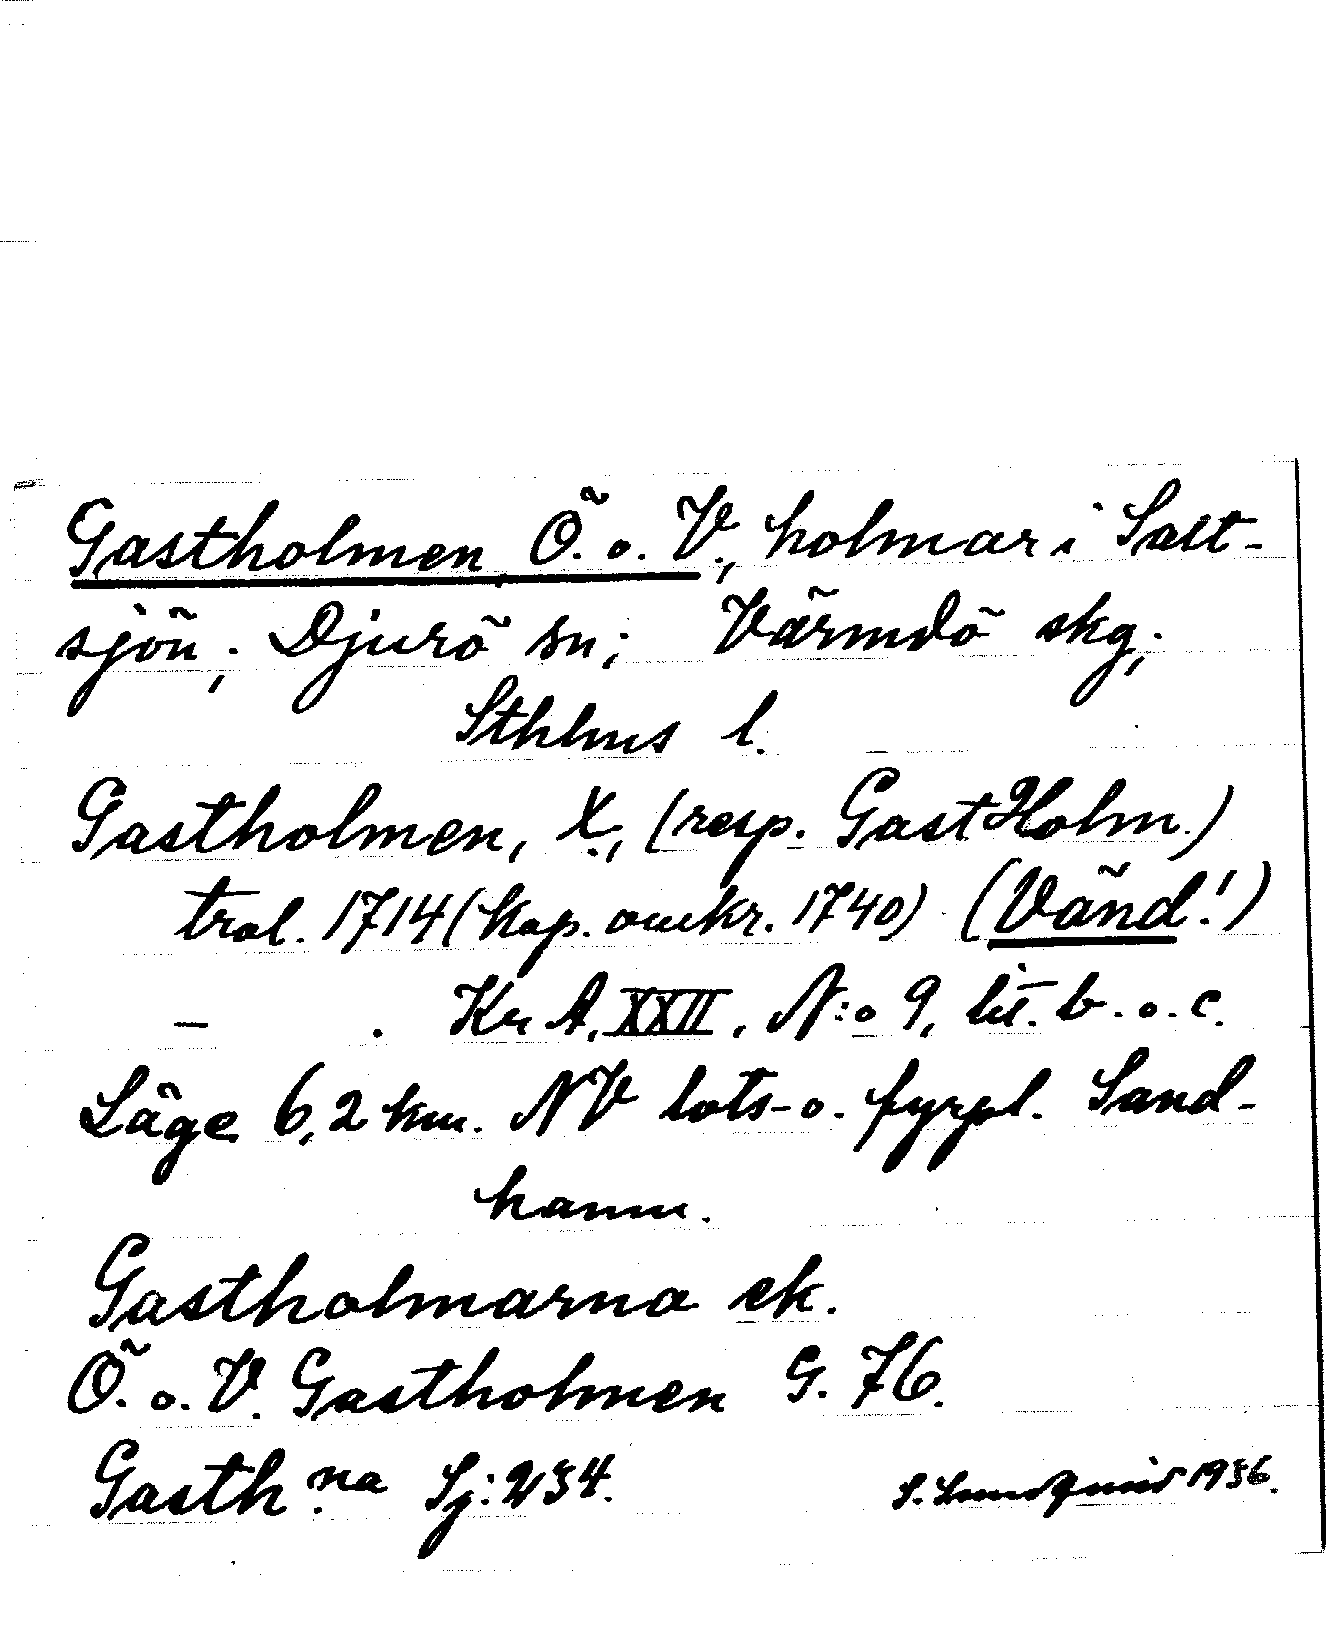 Gastholmen, Ö. o. V., holmar i Salt-
sjön; Djurö sn; Värmdö skg;
Sthlms l.
Gastholmen, X., (resp. Gast Holm.)
tral. 1714 (kop. omkr. 1740) (Vänd!)
– . Kr A, XXII, N:o 9, lit. b. o. c.
Läge 6,2 km. NV lots- o. fyrpl. Sand-
hamn.
Gastholmarna ek.
Ö. o. V. Gastholmen G. 76.
Gasth na Sj: 234. S. Lundquist 1936.